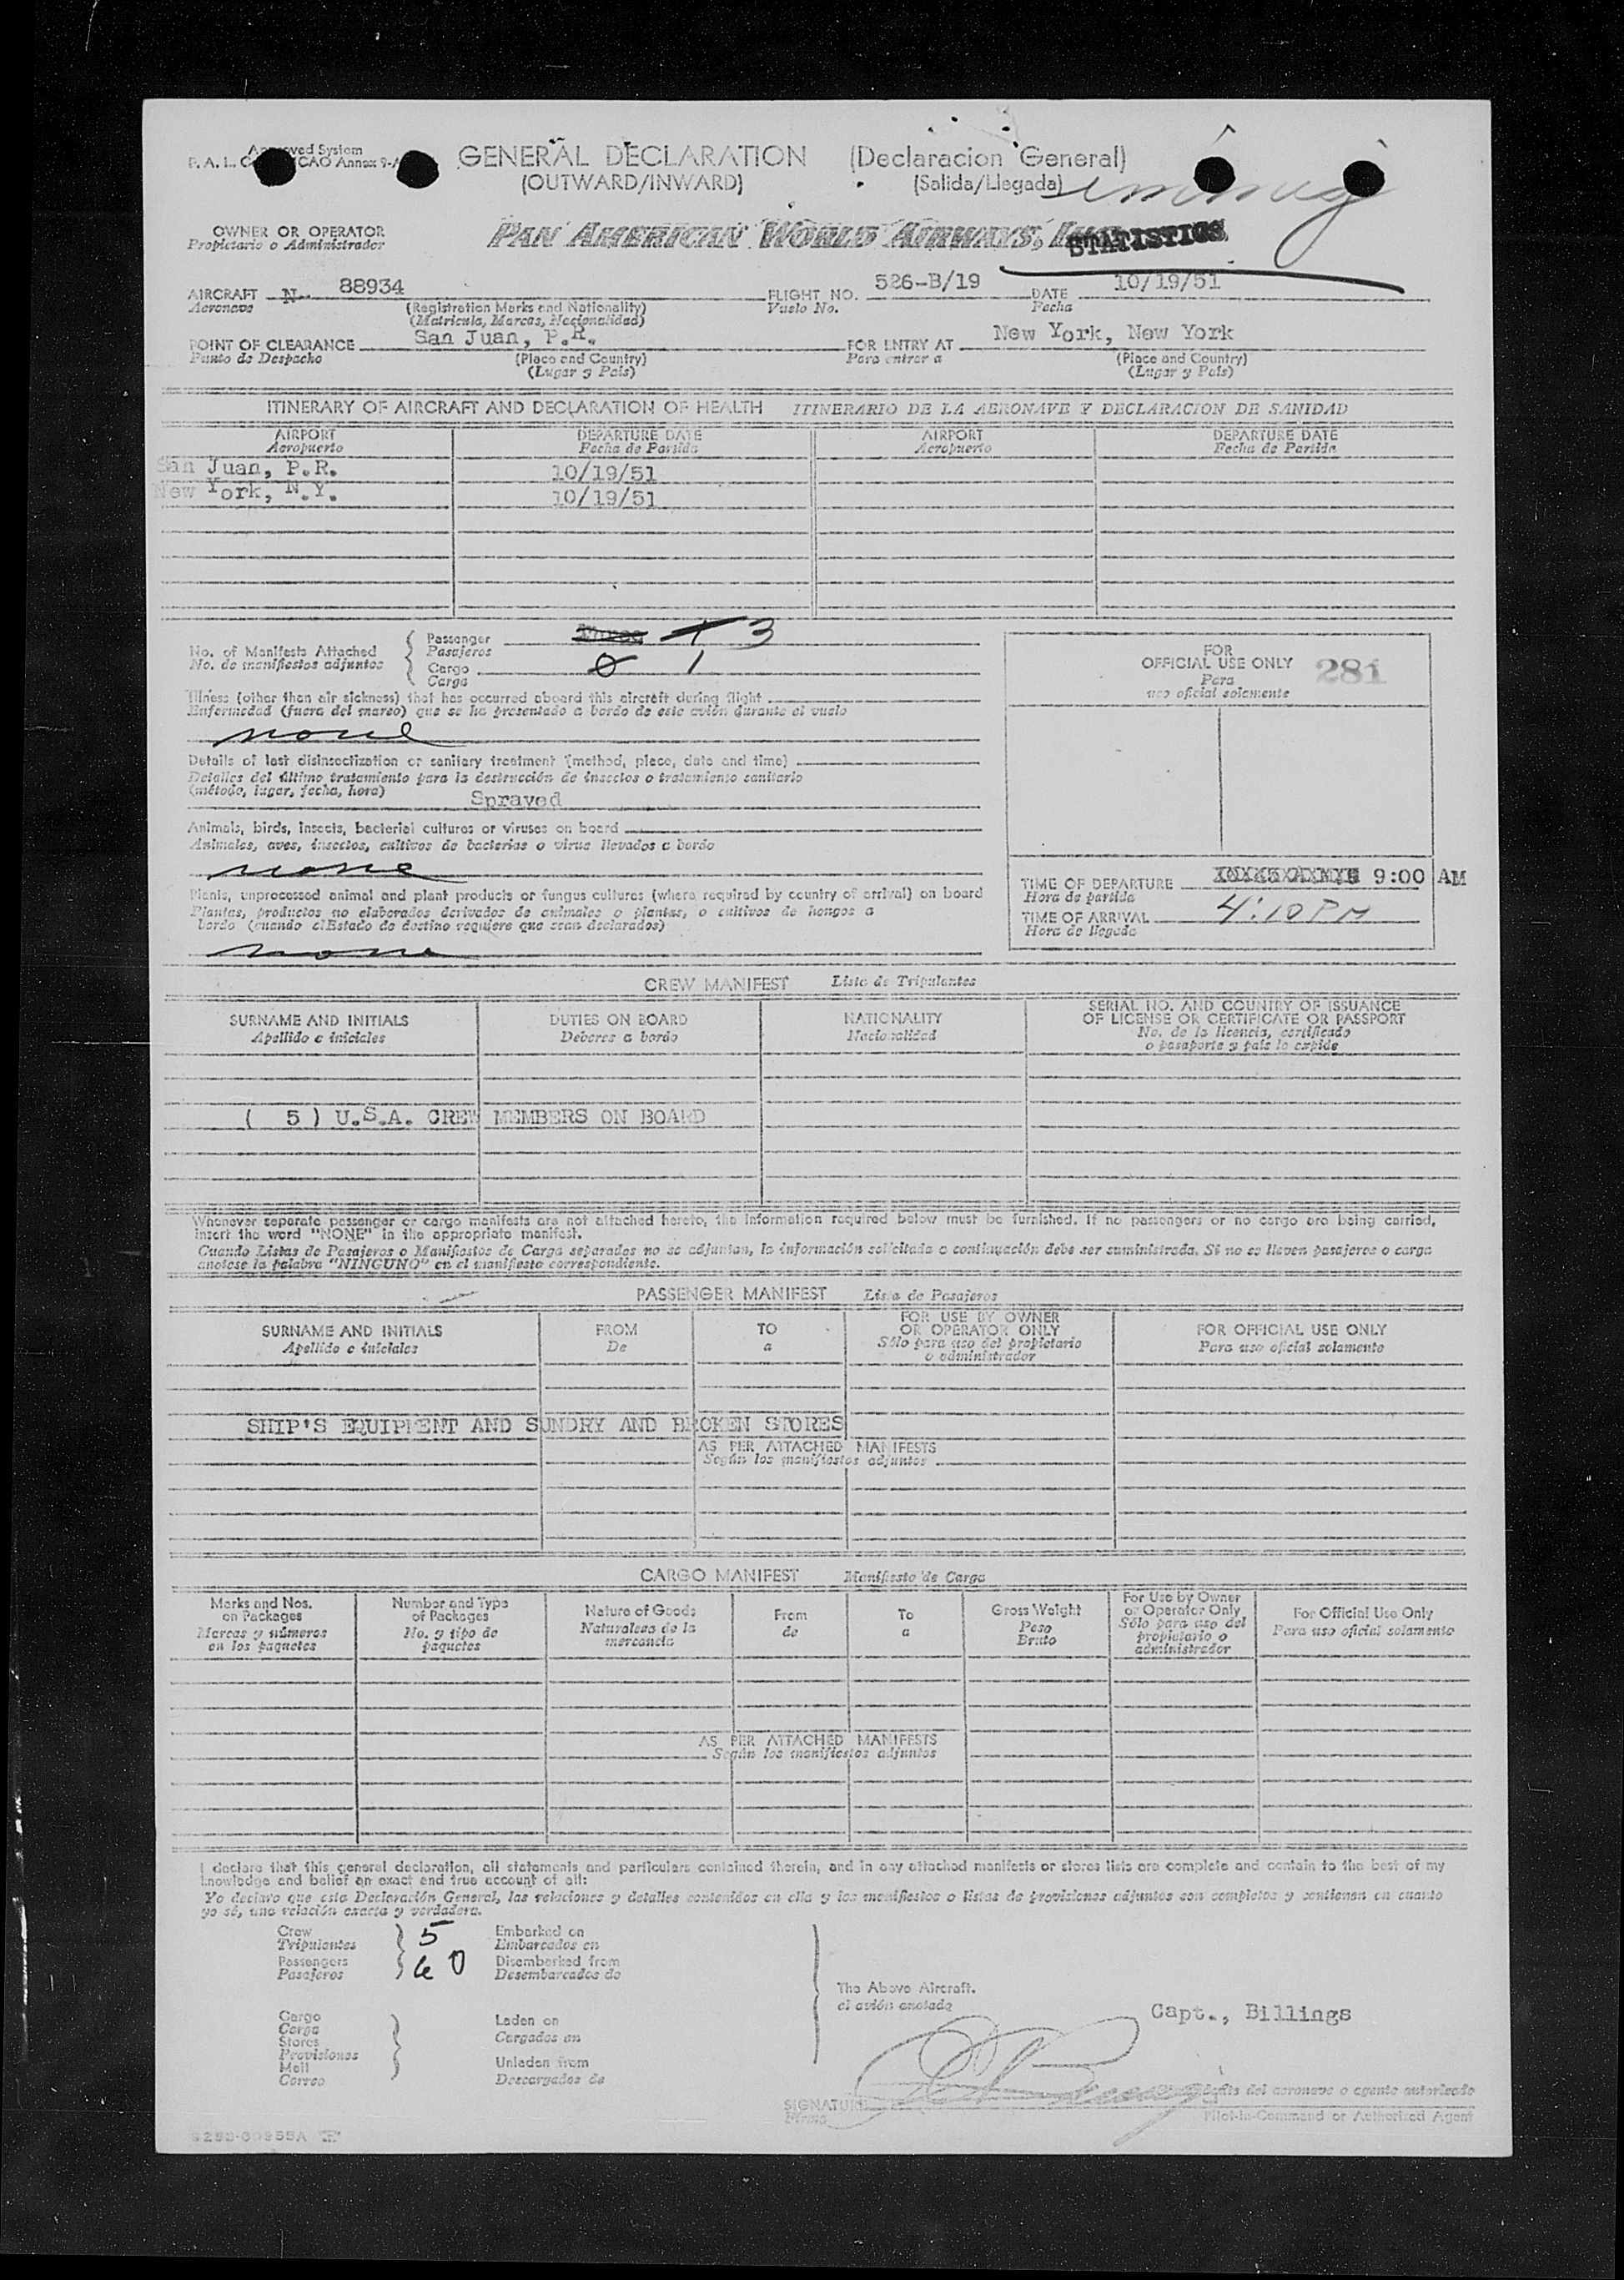 GENERAL DECLARATION (Declaracion General)
(OUTWARD/INWARD) (Salida/Llegada)
OWNER OR OPERATOR
Propietario o Administrador
PAN AMERICAN WORLD AIRWAYS,
STATISTICS
AIRCRAFT N- 88934 FLIGHT NO. 526-B/19 DATE 10/19/51
Aeronave (Registration Marks and Nationality) Vuelo No. Fecha
(Matricula, Marcas, Nacionalidad)
POINT OF CLEARANCE San Juan, P.R. FOR ENTRY AT New York, New York
Punto de Despacho (Place and Country) Para entrar a (Place and Country)
(Lugar y Pais) (Lugar y Pais)
ITINERARY OF AIRCRAFT AND DECLARATION OF HEALTH ITINERARIO DE LA AERONAVE Y DECLARACION DE SANIDAD
AIRPORT DEPARTURE DATE AIRPORT DEPARTURE DATE
Aeropuerto Fecha de Partida Aeropuerto Fecha de Partida
San Juan, P.R. 10/19/51
New York, N.Y. 10/19/51
No. of Manifests Attached
No. de manifiestos adjuntos
Passenger 3
Pasajeros
Cargo 0 1
Carga
FOR
OFFICIAL USE ONLY 281
Para
uso oficial solamente
Illness (other than air sickness) that has occurred aboard this aircraft during flight
Enfermedad (fuera del mareo) que se ha presentado a bordo de este avión durante el vuelo
none
Details of last disinsectization or sanitary treatment (method, place, date and time)
Detalles del último tratamiento para la destrucción de insectos o tratamiento sanitario
(método, lugar, fecha, hora) Sprayed
Animals, birds, insects, bacterial cultures or viruses on board
Animales, aves, insectos, cultivos de bacterias o virus llevados a bordo
none
Plants, unprocessed animal and plant products or fungus cultures (where required by country of arrival) on board
Plantas, productos no elaborados derivados de animales o plantas, o cultivos de hongos a
bordo (cuando el Estado de destino requiere que sean declarados)
none
TIME OF DEPARTURE 9:00 AM
Hora de partida
TIME OF ARRIVAL 4:10 PM
Hora de llegada
CREW MANIFEST Lista de Tripulantes
SURNAME AND INITIALS DUTIES ON BOARD NATIONALITY SERIAL NO. AND COUNTRY OF ISSUANCE
OF LICENSE OR CERTIFICATE OR PASSPORT
Apellido e iniciales Deberes a bordo Nacionalidad No. de la licencia, certificado
o pasaporte y pais lo expide
( 5 ) U.S.A. CREW MEMBERS ON BOARD
Whenever separate passenger or cargo manifests are not attached hereto, the information required below must be furnished. If no passengers or no cargo are being carried,
insert the word "NONE" in the appropriate manifest.
Cuando Listas de Pasajeros o Manifiestos de Carga separados no se adjuntan, la información solicitada a continuación debe ser suministrada. Si no se lleven pasajeros o carga
anotese la palabra "NINGUNO" en el manifiesto correspondiente.
PASSENGER MANIFEST Lista de Pasajeros
SURNAME AND INITIALS FROM TO FOR USE BY OWNER
OR OPERATOR ONLY FOR OFFICIAL USE ONLY
Apellido e iniciales De a Sólo para uso del propietario
o administrador Para uso oficial solamente
SHIP'S EQUIPMENT AND SUNDRY AND BROKEN STORES
AS PER ATTACHED MANIFESTS
Según los manifiestos adjuntos
CARGO MANIFEST Manifiesto de Carga
Marks and Nos.
on Packages
Marcas y números
en los paquetes
Number and Type
of Packages
No. y tipo de
paquetes
Nature of Goods
Naturaleza de la
mercancia
From
de
To
a
Gross Weight
Peso
Bruto
For Use by Owner
or Operator Only
Sólo para uso del
propietario o
administrador
For Official Use Only
Para uso oficial solamente
AS PER ATTACHED MANIFESTS
Según los manifiestos adjuntos
I declare that this general declaration, all statements and particulars contained therein, and in any attached manifests or stores lists are complete and contain to the best of my
knowledge and belief an exact and true account of all:
Yo declaro que esta Declaración General, las relaciones y detalles contenidos en ella y los manifiestos o listas de provisiones adjuntos son completos y contienen en cuanto
yo sé, una relación exacta y verdadera.
Crew 5 Embarked on
Tripulantes Embarcados en
Passengers 60 Disembarked from
Pasajeros Desembarcados de
The Above Aircraft.
el avión anotado
Cargo
Carga
Stores
Provisiones
Mail
Correo
Laden on
Cargados en
Unladen from
Descargados de
Capt., Billings
SIGNATURE
Firma
del aeronave o agente autorizado
Pilot-in-Command or Authorized Agent